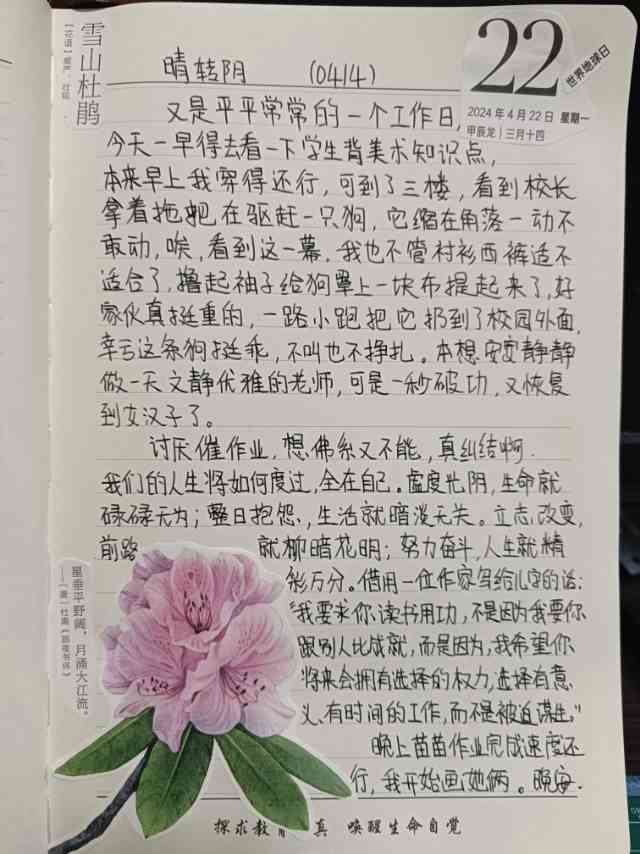 雪山杜鹃
【花语】威严、壮硕
22
世界地球日
2024年4月22日 星期一
甲辰龙｜三月十四
晴转阴 (0414)
又是平平常常的一个工作日,
今天一早得去看一下学生背美术知识点,
本来早上我穿得还行,可到了三楼,看到校长
拿着拖把在驱赶一只狗,它缩在角落一动不
敢动,唉,看到这一幕,我也不管衬衫西裤适不
适合了,撸起袖子给狗罩上一块布提起来了,好
家伙真挺重的,一路小跑把它扔到了校园外面,
幸亏这条狗挺乖,不叫也不挣扎。本想安安静静
做一天文静优雅的老师,可是一秒破功,又恢复
到女汉子了。
讨厌催作业,想佛系又不能,真纠结啊.
我们的人生将如何度过,全在自己。虚度光阴,生命就
碌碌无为;整日抱怨,生活就暗淡无光。立志改变,
前路 就柳暗花明;努力奋斗,人生就精
彩万分。借用一位作家写给儿子的话:
"我要求你读书用功,不是因为我要你
跟别人比成就,而是因为,我希望你
将来会拥有选择的权力,选择有意
义、有时间的工作,而不是被迫谋生。"
晚上苗苗作业完成速度还
行,我开始画她俩。晚安.
星垂平野阔，月涌大江流。
——【唐】杜甫《旅夜书怀》
探求教育 真 唤醒生命自觉